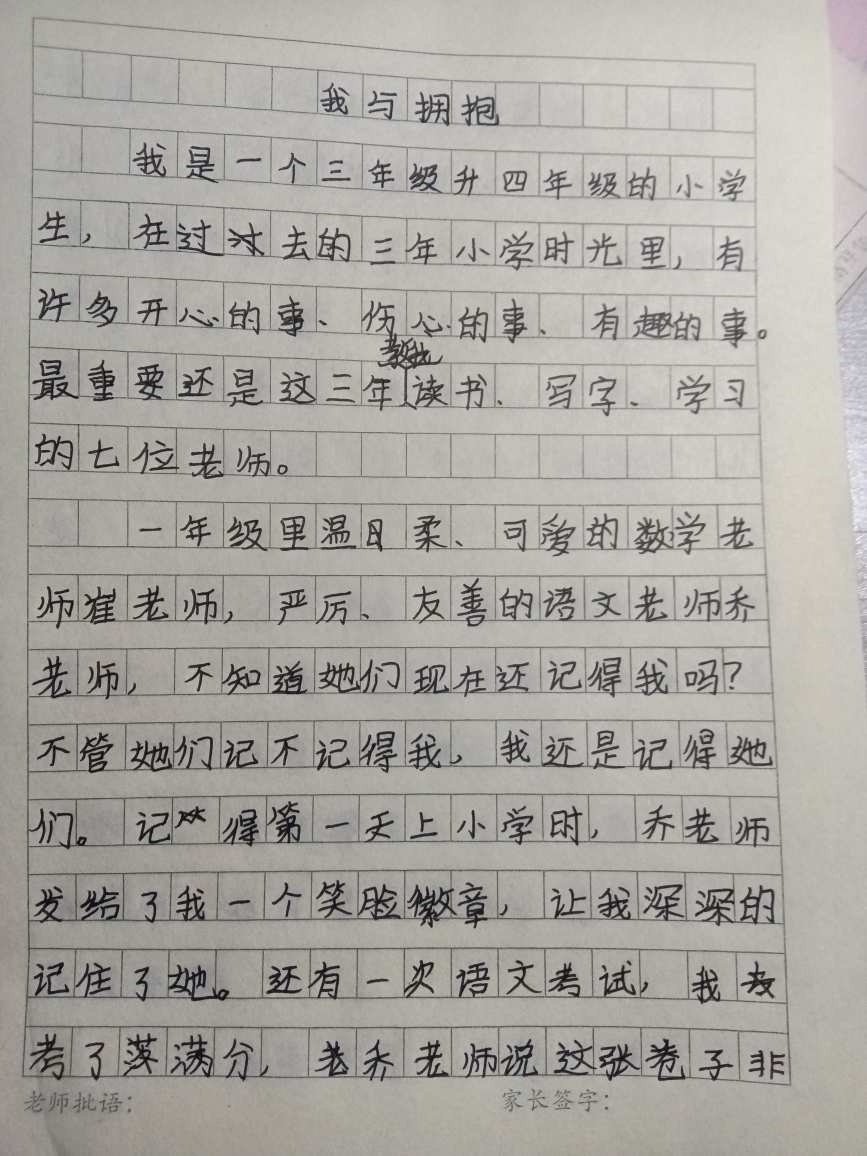 我与拥抱
我是一个三年级升四年级的小学
生，在过去的三年小学时光里，有
许多开心的事、伤心的事、有趣的事。
教我
最重要还是这三年读书、写字、学习
的七位老师。
一年级里温柔、可爱的数学老
师崔老师，严厉、友善的语文老师乔
老师，不知道她们现在还记得我吗？
不管她们记不记得我，我还是记得她
们。记得第一天上小学时，乔老师
发给了我一个笑脸徽章，让我深深的
记住了她。还有一次语文考试，我
考了满分，乔老师说这张卷子非
老师批语：
家长签字：